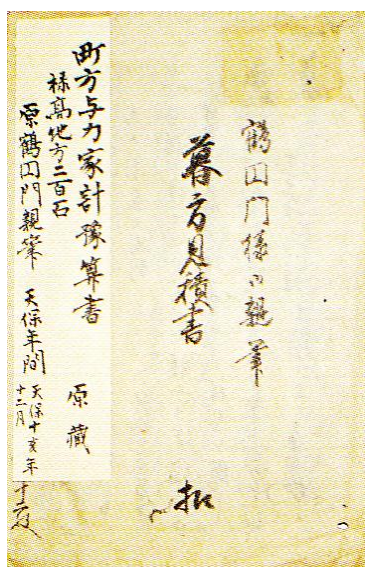 鶴四門様御親筆
暮方見積書
扣
町方与力家計豫算書
原蔵
禄高地方二百石
原鶴四門親筆 天保年間
天保十亥年
十二月
十二月